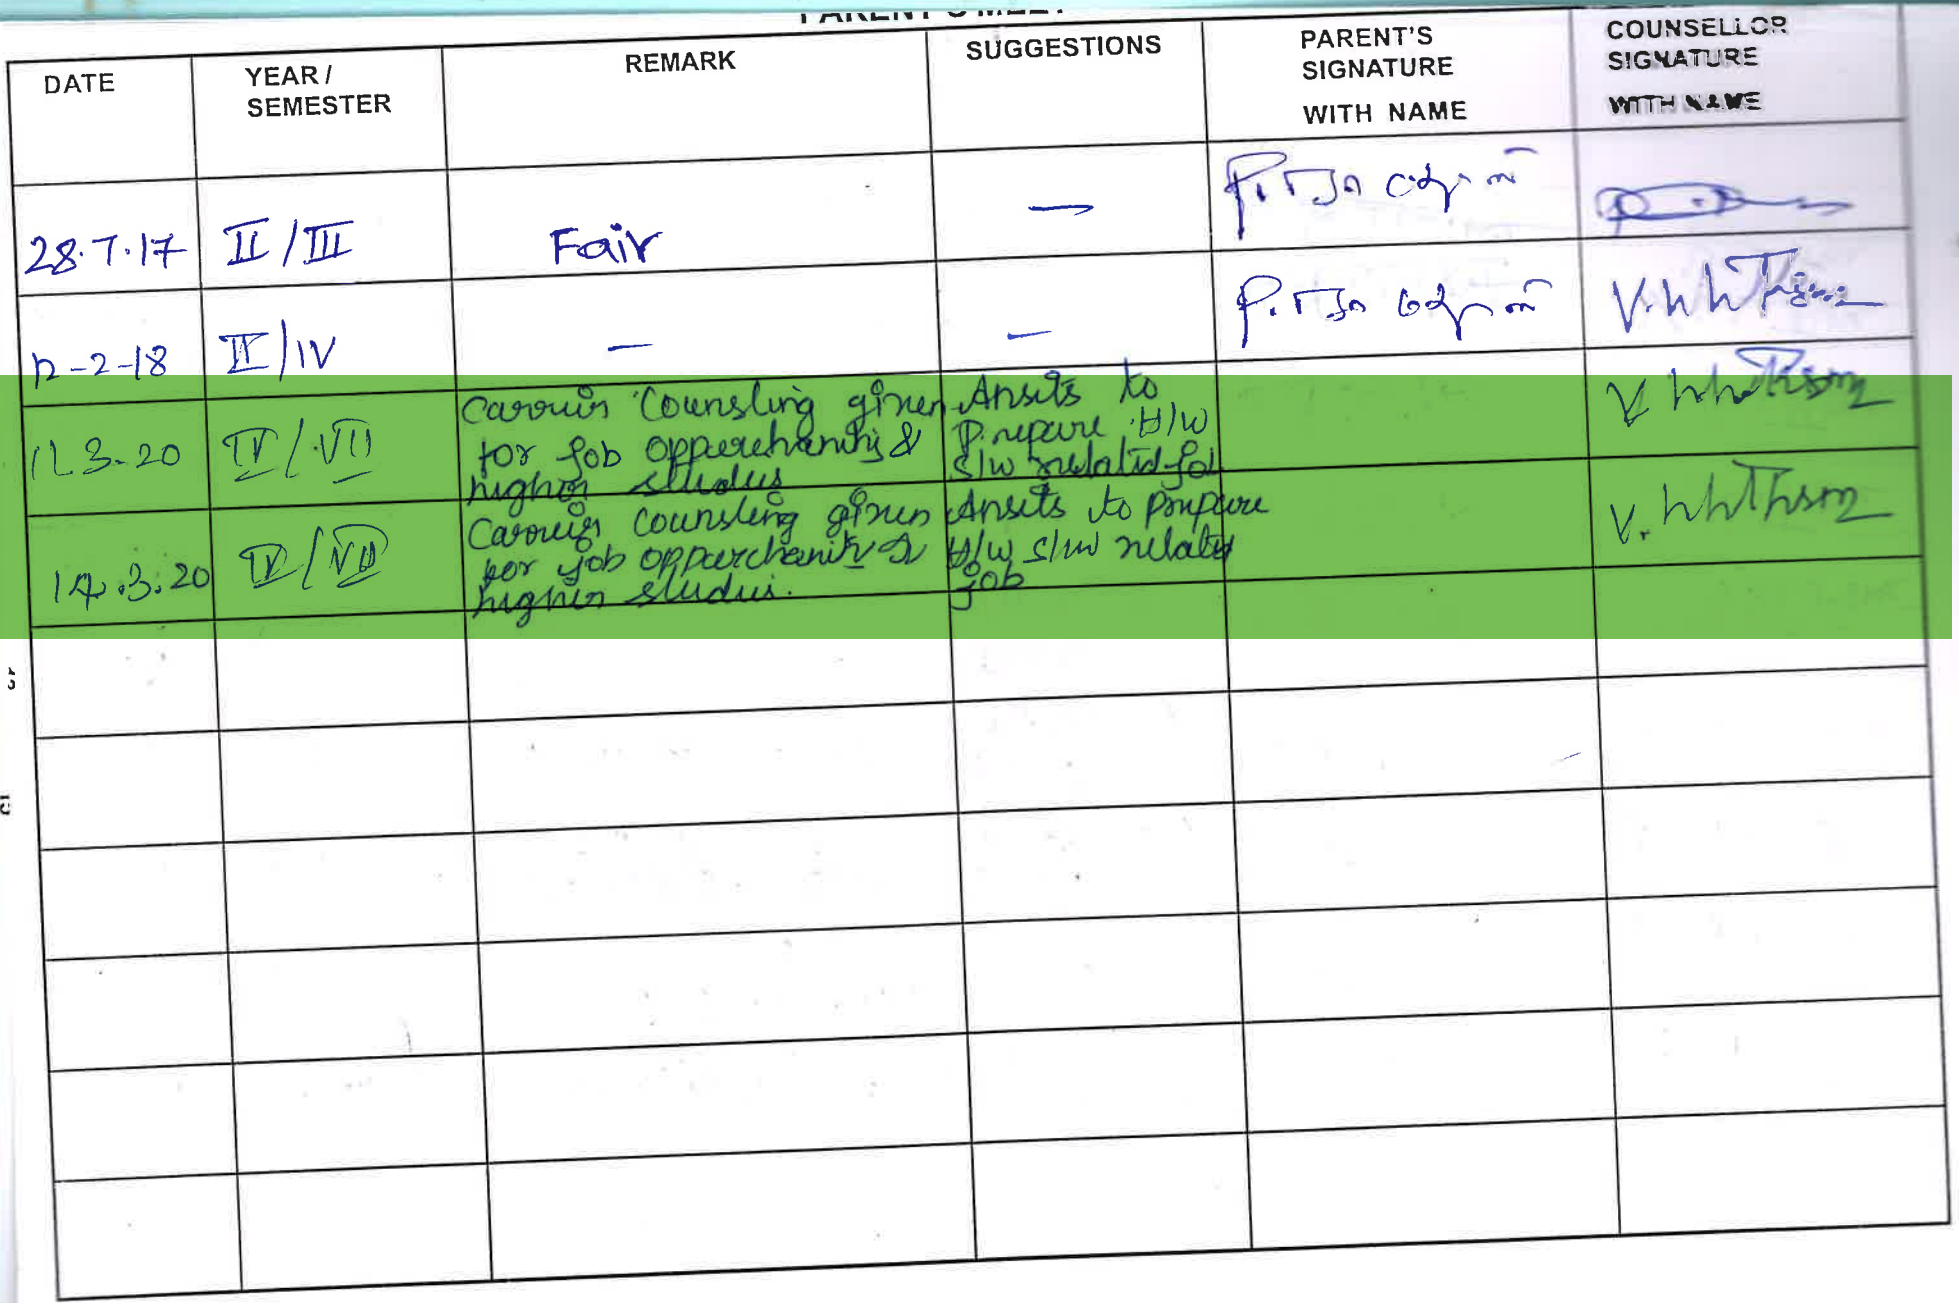 PARENT'S MEET
DATE
YEAR /
SEMESTER
REMARK
SUGGESTIONS
PARENT'S
SIGNATURE
WITH NAME
COUNSELLOR
SIGNATURE
WITH NAME
28.7.17 II/III Fair —
12-2-18 II/IV — —
11.3.20 IV/VII
Carrier Counsling given
for job & 
higher studies
to
Prepare H/W
S/W related job
14.3.20 IV/VII
Carrier Counsling given
for job &
higher studies.
to prepare
H/W S/W related
job